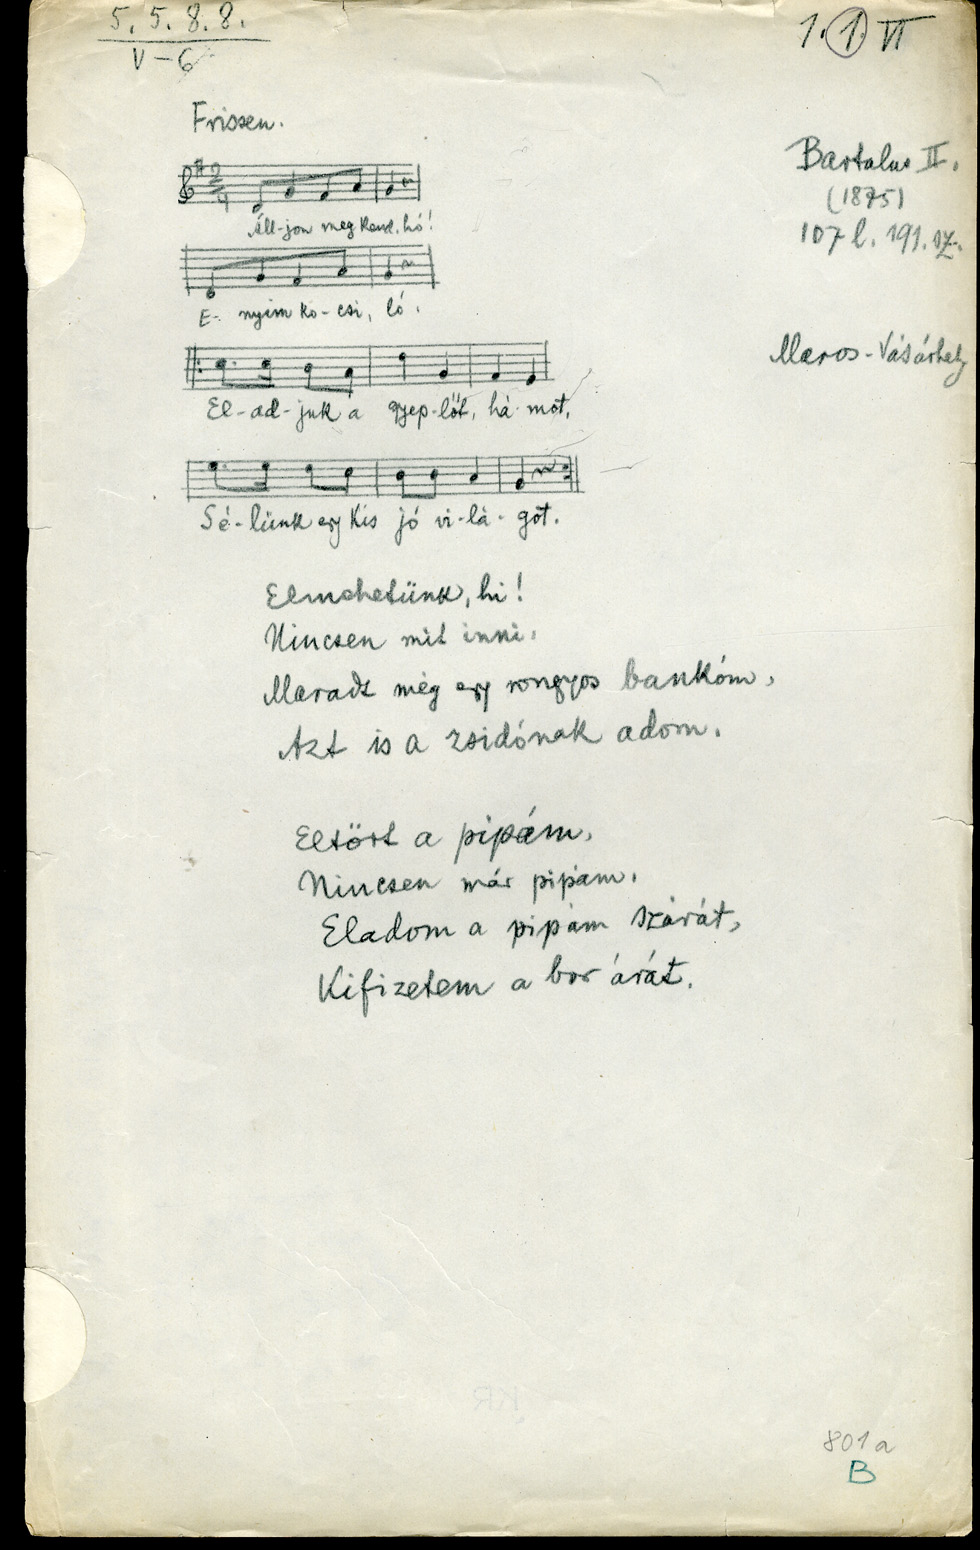 5. 5. 8. 8.
V – 6
1. 1. VI
Frissen.
Bartalus II.
(1875)
107 l. 191. sz.
Maros-Vásárhely
2/4
Áll-jon meg kend, hó!
E- nyim ko-csi, ló.
El-ad-juk a gyep-lőt, há-mot,
Sé-lünk egy kis jó vi-lá-got.
Elmehetünk, hi!
Nincsen mit inni,
Maradt még egy rongyos bankóm,
Azt is a zsidónak adom.
Eltört a pipám,
Nincsen már pipám.
Eladom a pipám szárát,
Kifizetem a bor árát.
801a
B